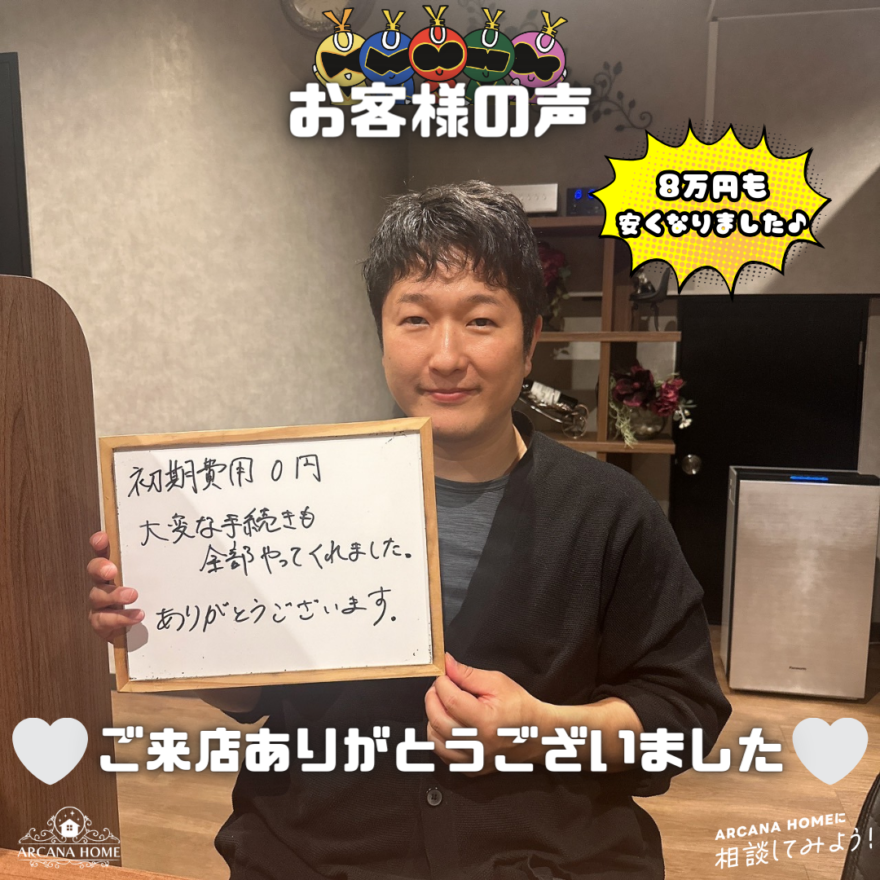 お客様の声
8万円も
安くなりました♪
初期費用 0円
大変な手続きも
全部やってくれました。
ありがとうございます。
Panasonic
ご来店ありがとうございました
ARCANA HOME
ARCANA HOMEに
相談してみよう!